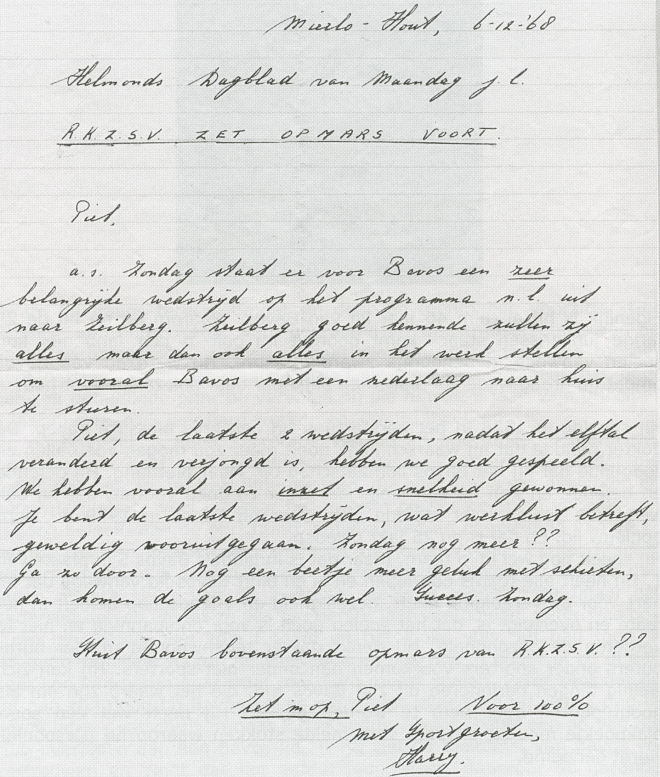 Mierlo-Hout, 6-12-'68
Helmonds Dagblad van Maandag j.l.
R.K.Z.S.V. ZET OPMARS VOORT.
Piet,
a.s. Zondag staat er voor Bavos een zeer
belangrijke wedstrijd op het programma n.l. uit
naar Zeilberg. Zeilberg goed kennende zullen zij
alles maar dan ook alles in het werk stellen
om vooral Bavos met een nederlaag naar huis
te sturen.
Piet, de laatste 2 wedstrijden, nadat het elftal
veranderd en verjongd is, hebben we goed gespeeld.
We hebben vooral aan inzet en snelheid gewonnen.
Je bent de laatste wedstrijden, wat werklust betreft,
geweldig vooruitgegaan. Zondag nog meer??
Ga zo door. Nog een beetje meer geluk met schieten,
dan komen de goals ook wel. Succes. Zondag.
Stuit Bavos bovenstaande opmars van R.K.Z.S.V.??
Zet m op, Piet Voor 100%
met Sportgroeten,
Harry.